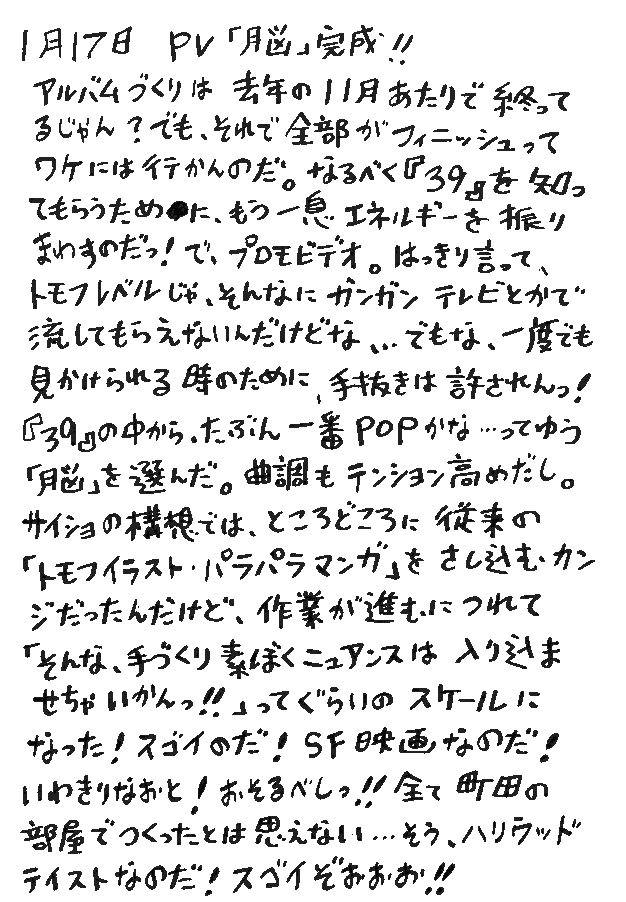 1月17日 PV「脳」完成!!
アルバムづくりは 去年の11月あたりで 終って
るじゃん？でも、それで 全部が フィニッシュって
ワケには行かんのだ。なるべく『39』を 知っ
てもらうために、もう一息 エネルギーを 振り
まわすのだっ！で、プロモビデオ。はっきり言って、
トモフレベルじゃ、そんなに ガンガン テレビとかで
流してもらえないんだけどな、…でもな、一度でも
見かけられる 時のために、手抜きは 許されんっ！
『39』の中から、たぶん 一番 POPかな…ってゆう
「脳」を 選んだ。曲調も テンション高めだし。
サイショの構想では、ところどころに 従来の
「トモフイラスト・パラパラマンガ」を さし込む カン
ジだったんだけど、作業が進むにつれて
「そんな、手づくり 素ぼくニュアンスは 入り込ま
せちゃ いかんっ!!」って ぐらいの スケールに
なった！スゴイのだ！SF映画なのだ！
いわきりなおと！おそるべしっ!!全て 町田の
部屋でつくったとは思えない…そう、ハリウッド
テイストなのだ！スゴイぞおおお!!